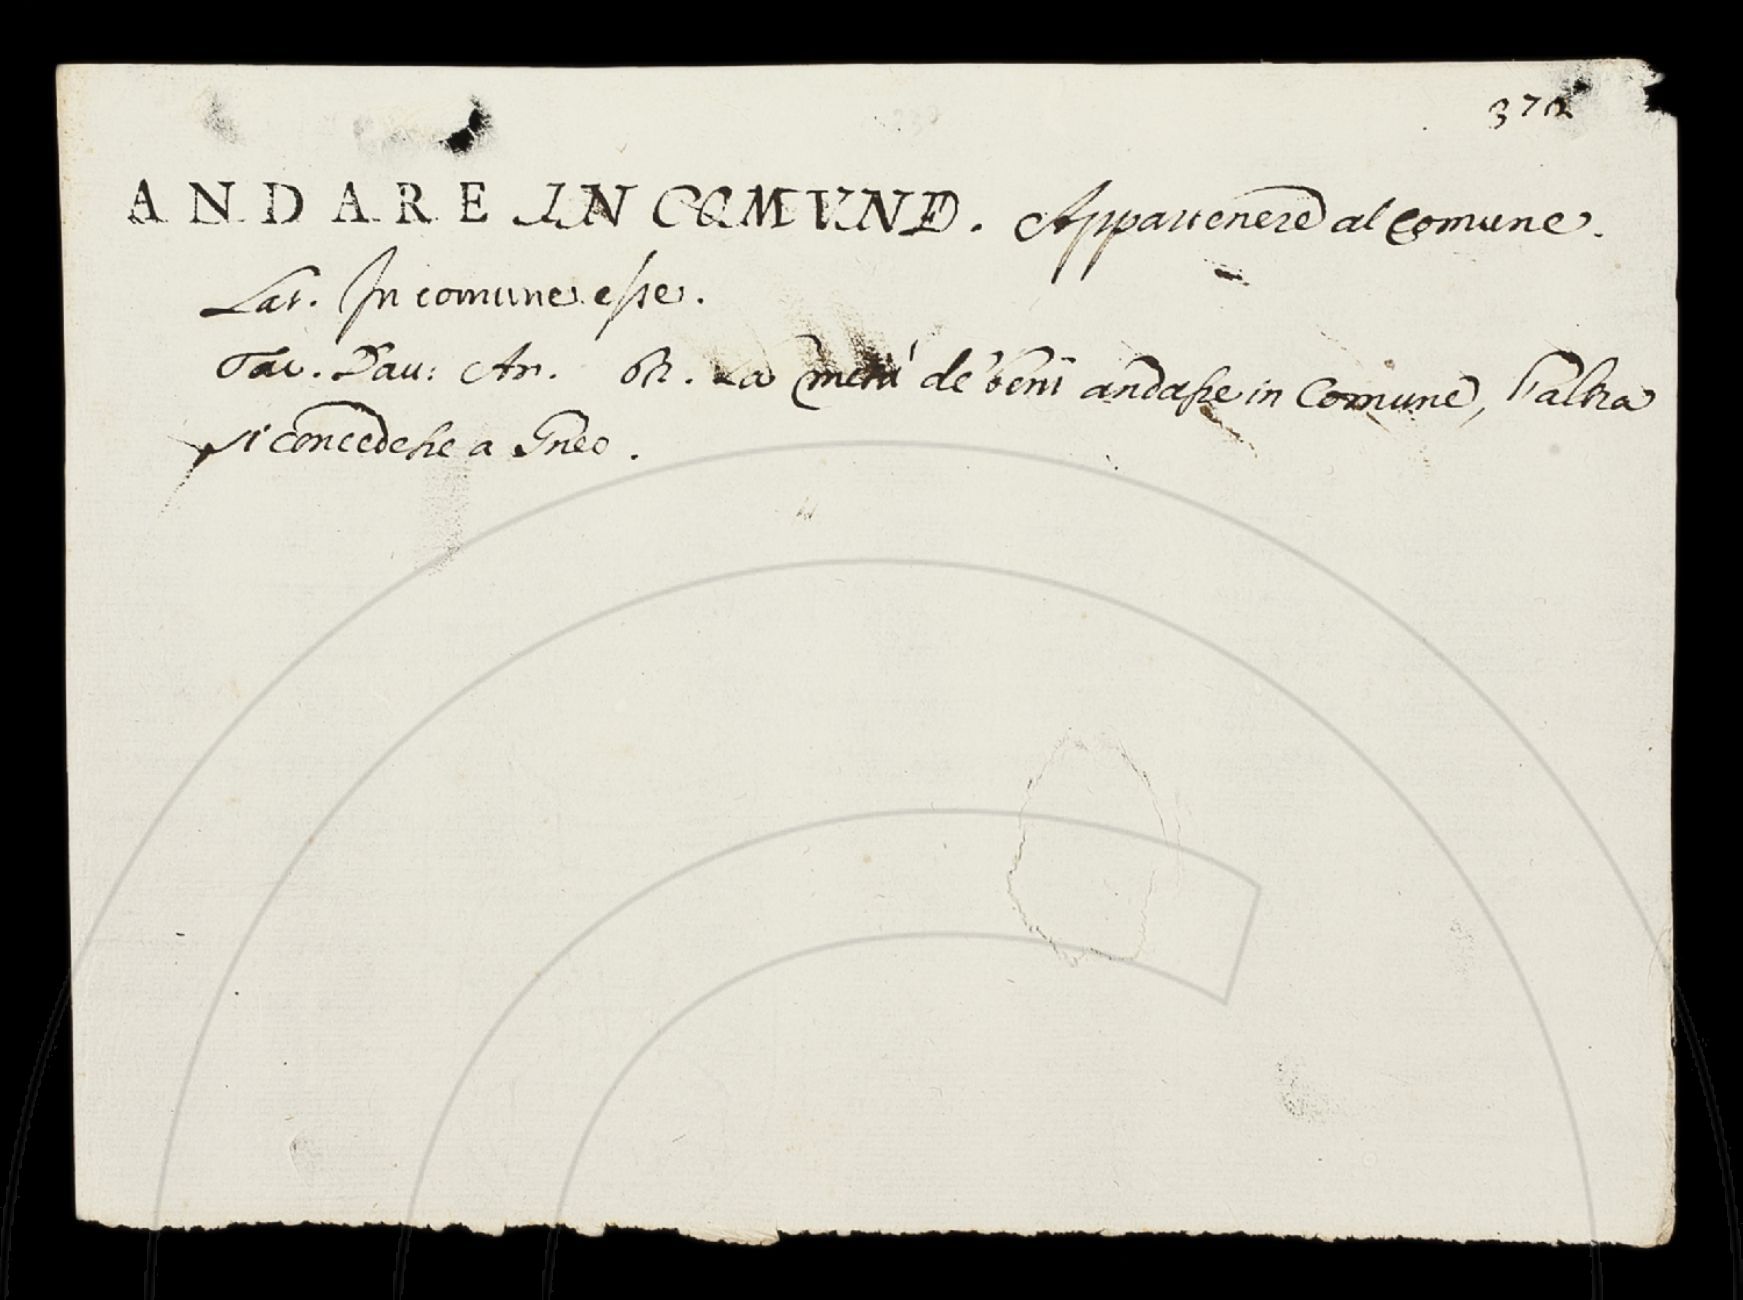 372
ANDARE IN COMVNE. Appartenere al Comune.
Lat. In comune esse.
Tac. Dau: An. 61. La metà de' beni andasse in Comune, l'altra
si concedesse a Gneo.